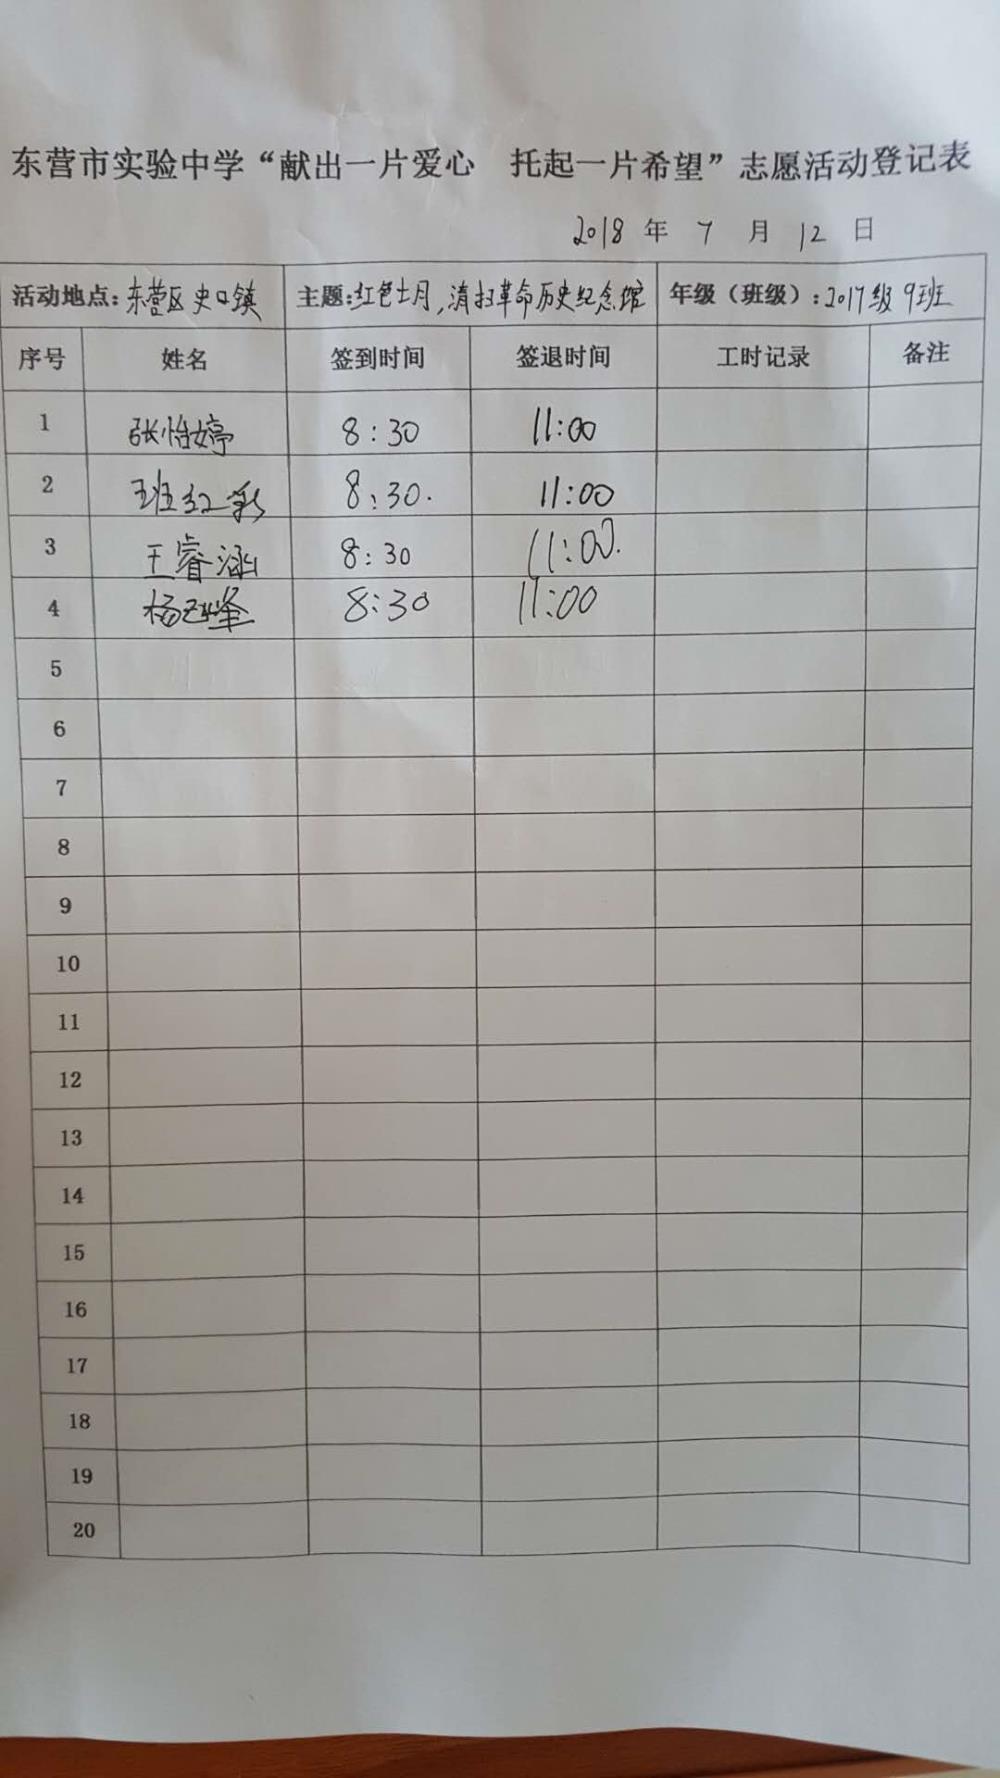 东营市实验中学“献出一片爱心 托起一片希望”志愿活动登记表
2018 年 7 月 12 日
活动地点：东营区史口镇 主题：红色七月，清扫革命历史纪念馆 年级（班级）：2017级9班
序号 姓名 签到时间 签退时间 工时记录 备注
1 张怡婷 8:30 11:00
2 班红彩 8:30. 11:00
3 王睿涵 8:30 11:00.
4 杨 8:30 11:00
5
6
7
8
9
10
11
12
13
14
15
16
17
18
19
20